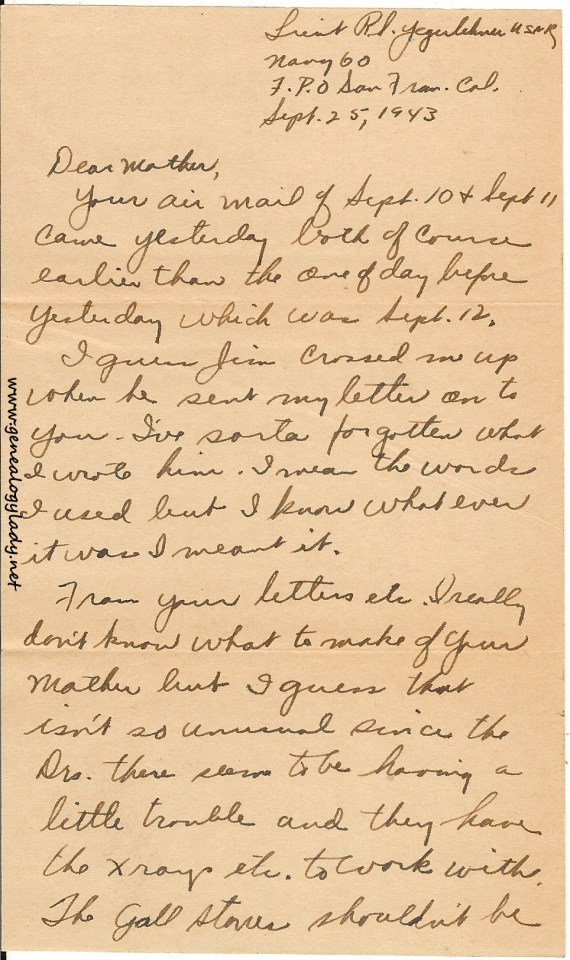 Lieut R.D. Yegerlehner USNR
Navy 60
F.P.O San Fran. Cal.
Sept. 25, 1943
Dear Mother,
Your air mail of Sept. 10 + Sept 11
came yesterday both of course
earlier than the one of day before
yesterday which was Sept. 12.
I guess Jim crossed me up
when he sent my letter on to
you - I've sorta forgotten what
I wrote him. I mean the words
I used but I know what ever
it was I meant it.
From your letters etc. I really
don't know what to make of your
Mother but I guess that
isn't so unusual since the
Drs. there seem to be having a
little trouble and they have
the xrays etc. to work with.
The Gall stones shouldn't be
www.genealogylady.net